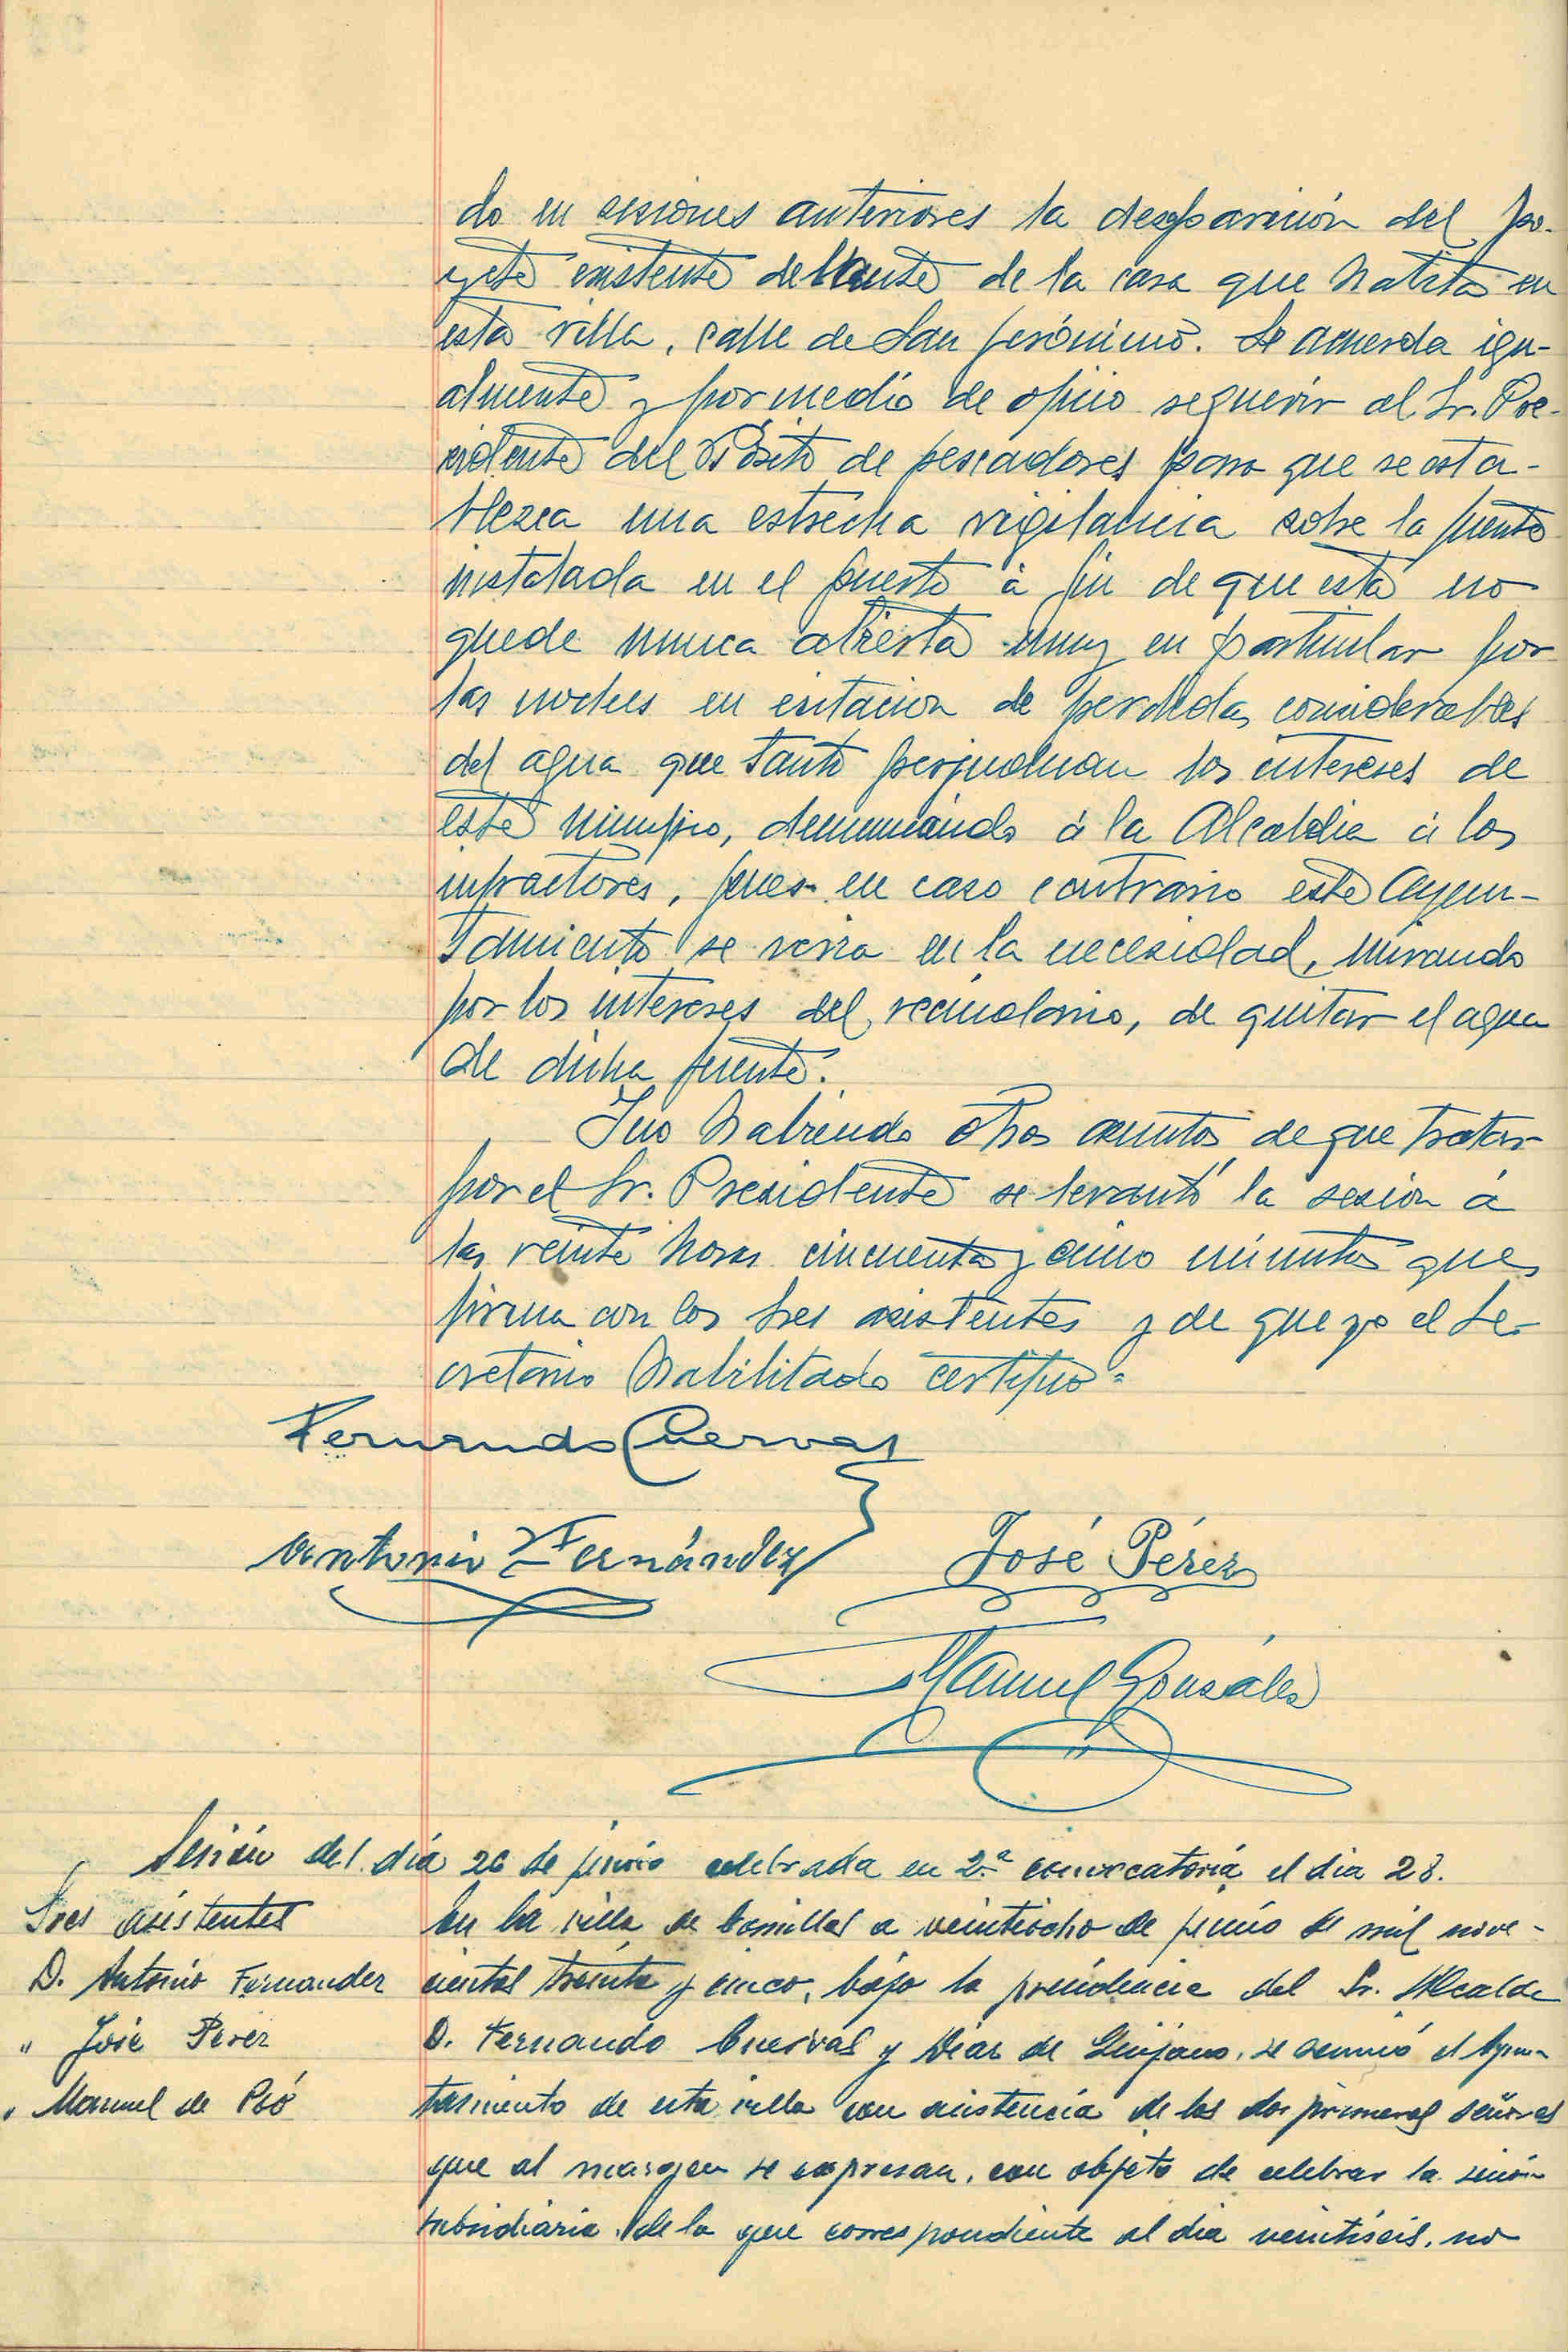 do en sesiones anteriores la desaparición del po-
yete existente delante de la casa que habita en
esta villa, calle de San Jerónimo. Se acuerda igu-
almente y por medio de oficio requerir al Sr. Pre-
sidente del Pósito de pescadores para que se esta-
blezca una estrecha vigilancia sobre la fuente
instalada en el puerto á fin de que esta no
quede nunca abierta muy en particular por
las noches en evitacion de perdidas considerables
del agua que tanto perjudican los intereses de
este municipio, denunciando á la Alcaldia á los
infractores, pues en caso contrario este Ayun-
tamiento se veria en la necesidad, mirando
por los intereses del vecindario, de quitar el agua
de dicha fuente.
Y no habiendo otros asuntos de que tratar
por el Sr. Presidente se levantó la sesion á
las veinte horas cincuenta y cinco minutos que
firma con los Sres asistentes y de que yo el Se-
cretario habilitado certifico=
Fernando Cuervas
Antonio Fernández
José Pérez
Manuel González
Sesión del día 26 de junio celebrada en 2.ª convocatoria el dia 28.
Sres asistentes
D. Antonio Fernandez
" José Perez
" Manuel de Poó
En la villa de Comillas a veintiocho de junio de mil nove-
cientos treinta y cinco, bajo la presidencia del Sr. Alcalde
D. Fernando Cuervas y Díaz de Quijano, se reunió el Ayun-
tamiento de esta villa con asistencia de los dos primeros señores
que al margen se expresan, con objeto de celebrar la sesión
subsidiaria de la que correspondiente al dia veintiséis, no